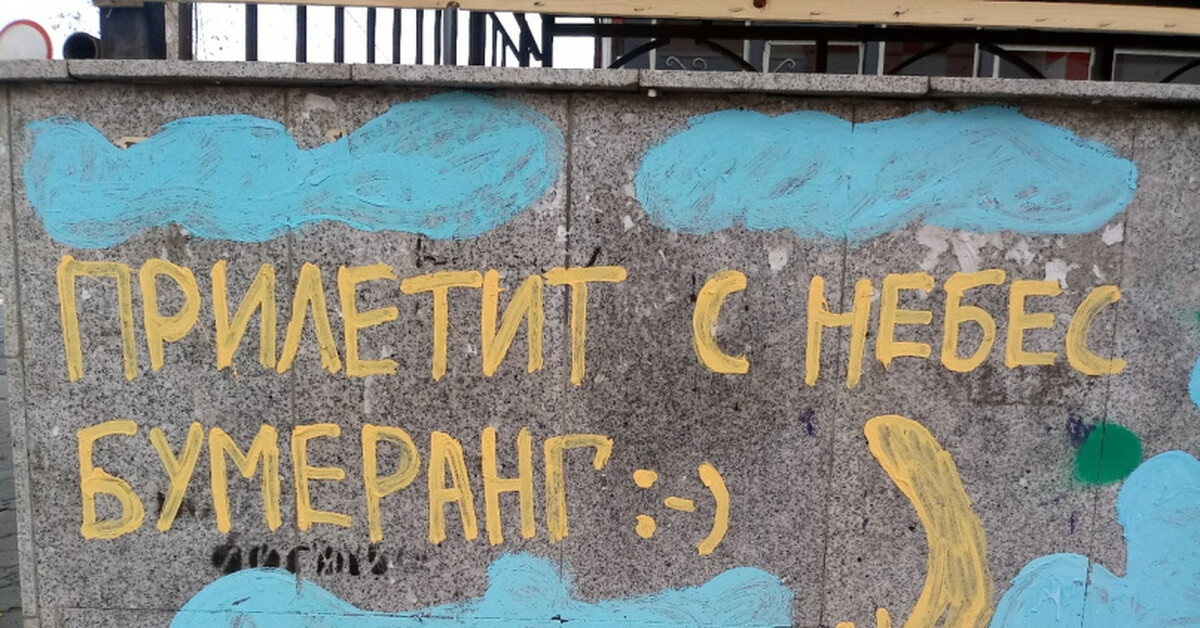 ПРИЛЕТИТ С НЕБЕС
БУМЕРАНГ :-)